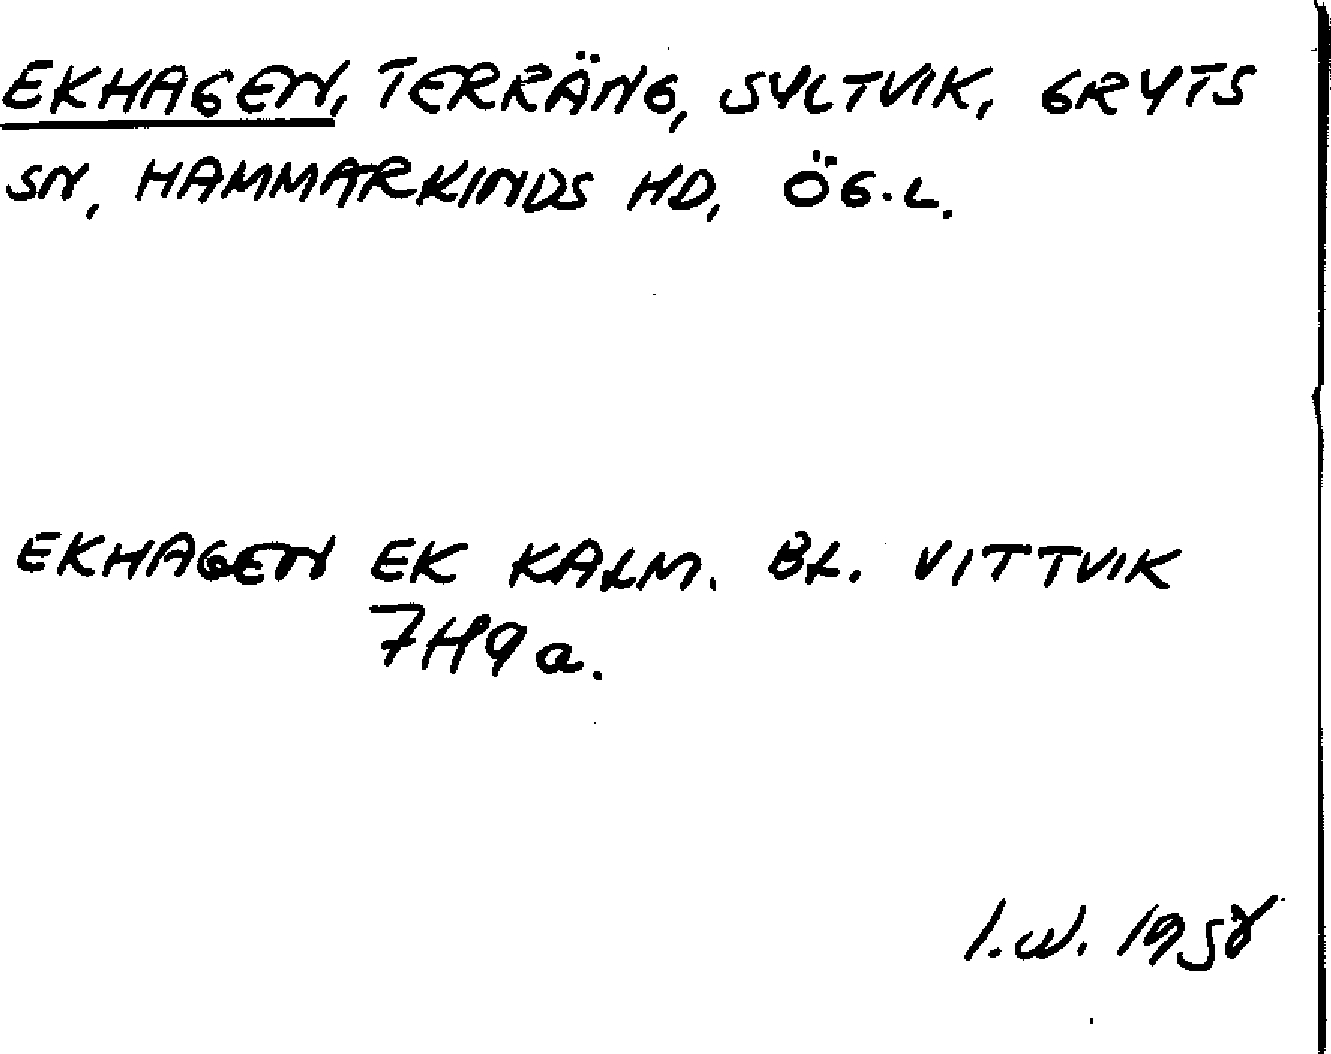 EKHAGEN, TERRÄNG, SYLTVIK, GRYTS
SN, HAMMARKINDS HD, ÖG.L.
EKHAGEN EK KALM. BL. VITTVIK
7H9a.
I.W. 1958